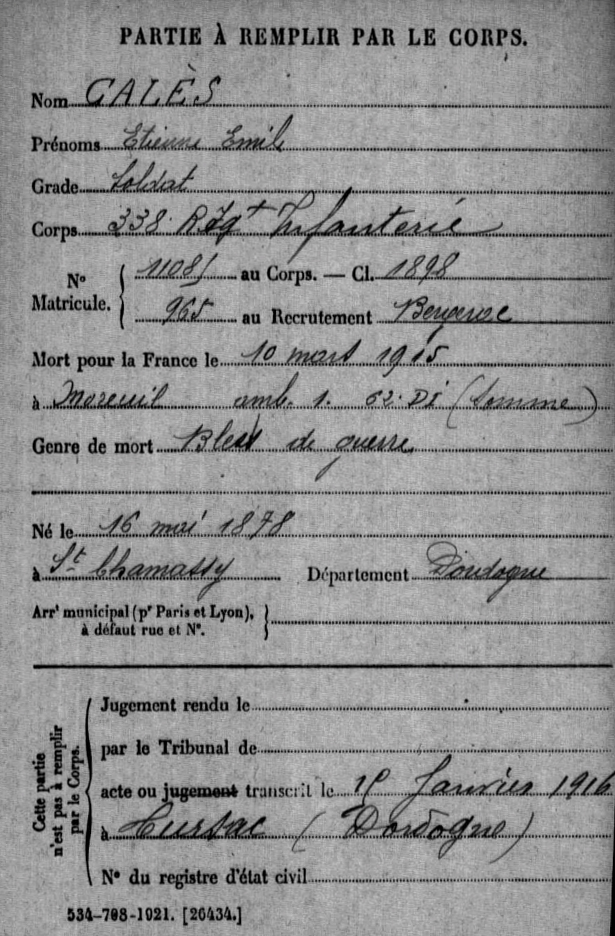 PARTIE À REMPLIR PAR LE CORPS.
Nom CALÈS
Prénoms Etienne Emile
Grade Soldat
Corps 338. Regt Infanterie
N° Matricule. 11085 au Corps. — Cl. 1898
965 au Recrutement Bergerac
Mort pour la France le 10 mars 1915
à Moreuil amb. 1. 62. DI (Somme)
Genre de mort Bless de guerre
Né le 16 mai 1878
à St Chamassy Département Dordogne
Arrt municipal (pr Paris et Lyon),
à défaut rue et N°.
Cette partie
n'est pas à remplir
par le Corps.
Jugement rendu le
par le Tribunal de
acte ou jugement transcrit le Janvier 1916
à (Dordogne)
N° du registre d'état civil
534-708-1921. [26434.]